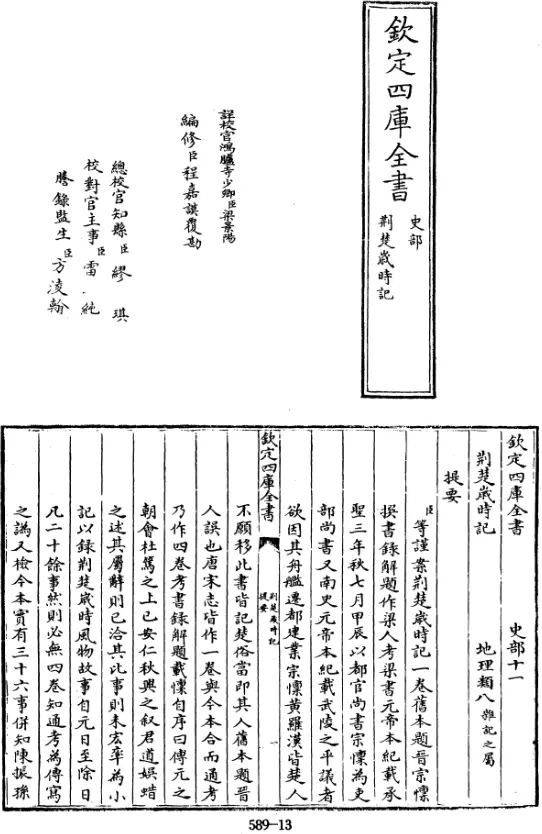 欽定四庫全書
史部
荆楚歲時記
詳校官鴻臚寺少卿臣梁景陽
編修臣程嘉謨覆勘
總校官知縣臣繆琪
校對官主事臣雷純
謄錄監生臣方淩翰
欽定四庫全書 史部十一
荆楚歲時記 地理類八雜記之屬
提要
臣等謹案荆楚歲時記一卷舊本題晉宗懍
撰書錄解題作梁人考梁書元帝本紀載承
聖三年秋七月甲辰以都官尚書宗懍為吏
部尚書又南史元帝本紀載武陵之平議者
欲因其舟艦遷都建業宗懍黃羅漢皆楚人
欽定四庫全書
荆楚歲時記
提要
一
不願移此書皆記楚俗當即其人舊本題晉
人誤也唐宋志皆作一卷與今本合而通考
乃作四卷考書錄解題載懍自序曰傳元之
朝會杜篤之上巳安仁秋興之叙君道娛蜡
之述其屬辭則已洽其比事則未宏率為小
記以錄荆楚歲時風物故事自元日至除日
凡二十餘事然則必無四卷知通考為傳寫
之譌又檢今本實有三十六事併知陳振孫
589-13